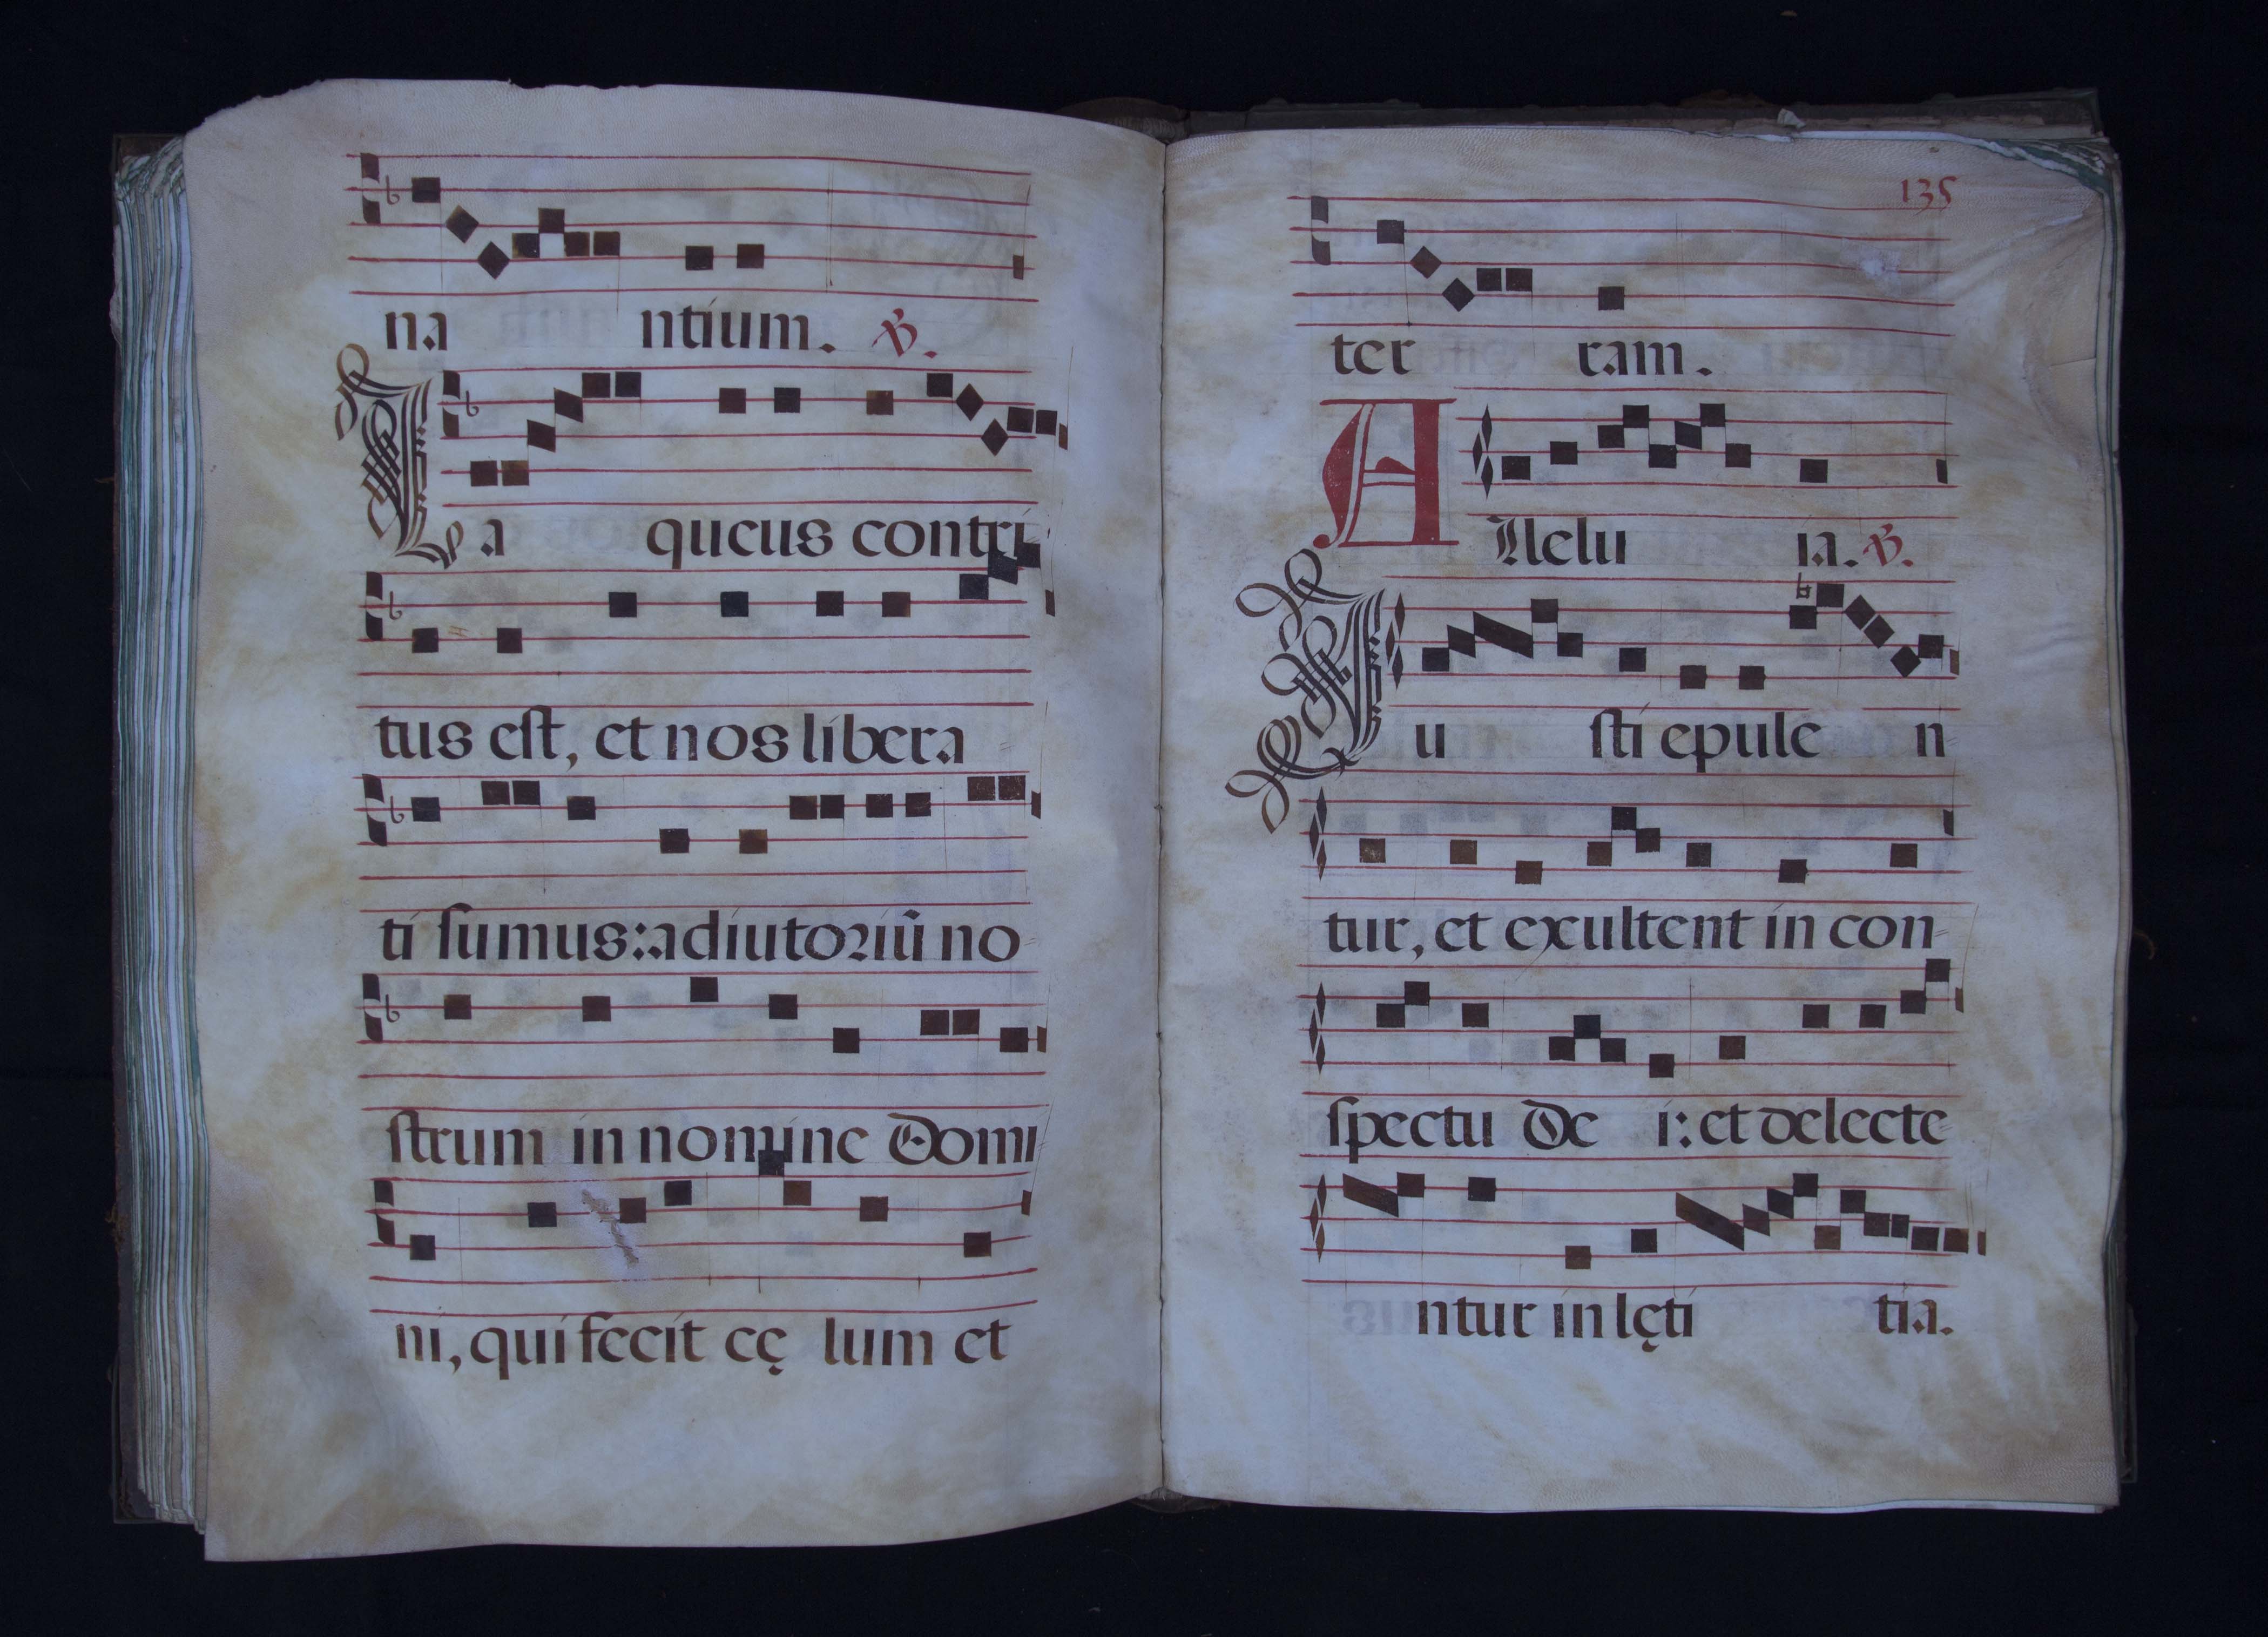 na ntium. ℣.
La queus contri
tus est, et nos libera
ti sumus: adiutoriũ no
strum in nomine Domi
ni, qui fecit cę lum et
135
ter ram.
Allelu ia. ℣.
Iu sti epule n
tur, et exultent in con
spectu De i: et delecte
ntur in lęti tia.